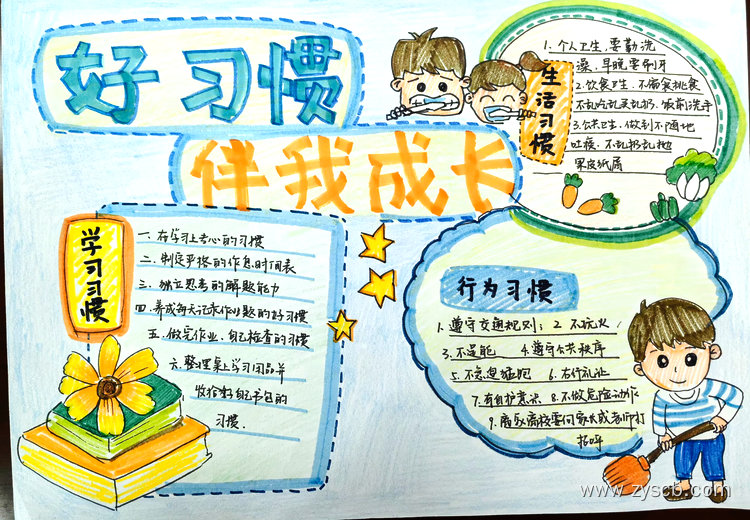 好习惯
伴我成长
生活习惯
1. 个人卫生,要勤洗
澡,早晚要刷牙
2. 饮食卫生,不偏食挑食
不乱吃乱丢乱扔,饭前洗手
3. 公共卫生,做到不随地
吐痰,不乱扔乱抛
果皮纸屑
学习习惯
一. 在学习上专心的习惯
二. 制定严格的作息时间表
三. 独立思考的解题能力
四. 养成每天记录作业题的好习惯
五. 做完作业,自己检查的习惯
六. 整理桌上学习用品并
收拾好自己书包的
习惯.
行为习惯
1. 遵守交通规则; 2. 不玩火
3. 不逞能 4. 遵守公共秩序
5. 不急追猛跑 6. 右行礼让
7. 有自护意识 8. 不做危险动作
9. 离家离校要向家长或老师打
招呼
www.zyscb.com